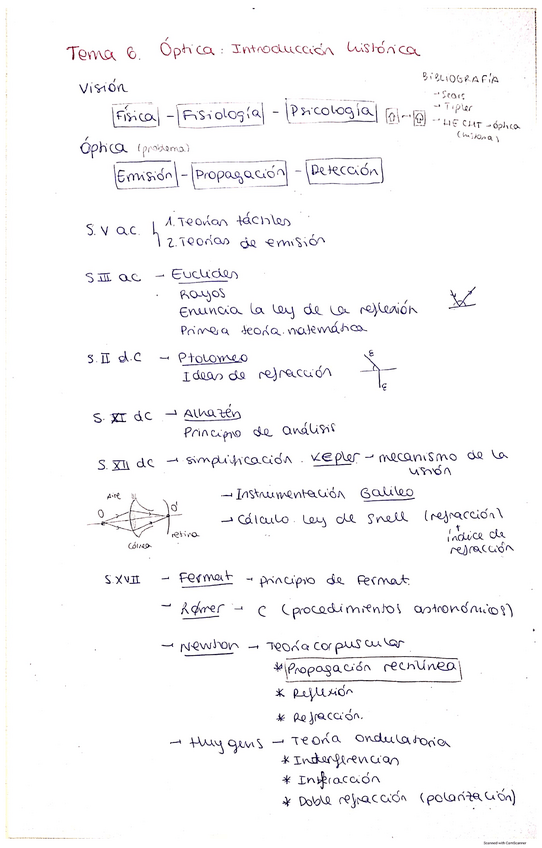 Tema 6. Óptica: Introducción histórica
BIBLIOGRAFÍA
→ Sears
→ Tipler
→ HECHT → óptica
Visión
Física - Fisiología - Psicología
Óptica (problema)
Emisión - Propagación - Detección
S. V a.c. 1. Teorías táctiles
2. Teorías de emisión
S III ac → Euclides
Rayos
Enuncia la ley de la reflexión
Primera teoría matemática
S. II d.C → Ptolomeo
Ideas de refracción
ε
ε
S. XI dC → Alhazén
Principio de análisis
S. XII dC → simplificación. Kepler → mecanismo de la
visión
→ Instrumentación Galileo
→ Cálculo. Ley de Snell (refracción)
índice de
refracción
Aire
O O'
retina
Córnea
S. XVII → Fermat → principio de Fermat.
→ Rømer → c (procedimientos astronómicos)
→ Newton → Teoría corpuscular
* Propagación rectilínea
* Reflexión
* Refracción.
→ Huygens → Teoría ondulatoria
* Interferencias
* Doble refracción (polarización)
Scanned with CamScanner